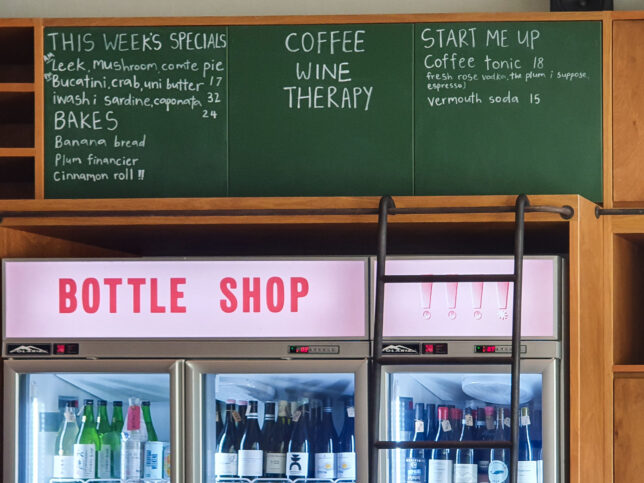 THIS WEEK'S SPECIALS
AM Leek, Mushroom, comte pie
Bucatini, crab, uni butter 17
iwashi sardine, caponata 32
24
BAKES
Banana bread
Plum financier
Cinnamon roll !!
COFFEE
WINE
THERAPY
START ME UP
Coffee tonic 18
fresh rose vodka, the plum i suppose,
espresso)
vermouth soda 15
BOTTLE SHOP
!!!!